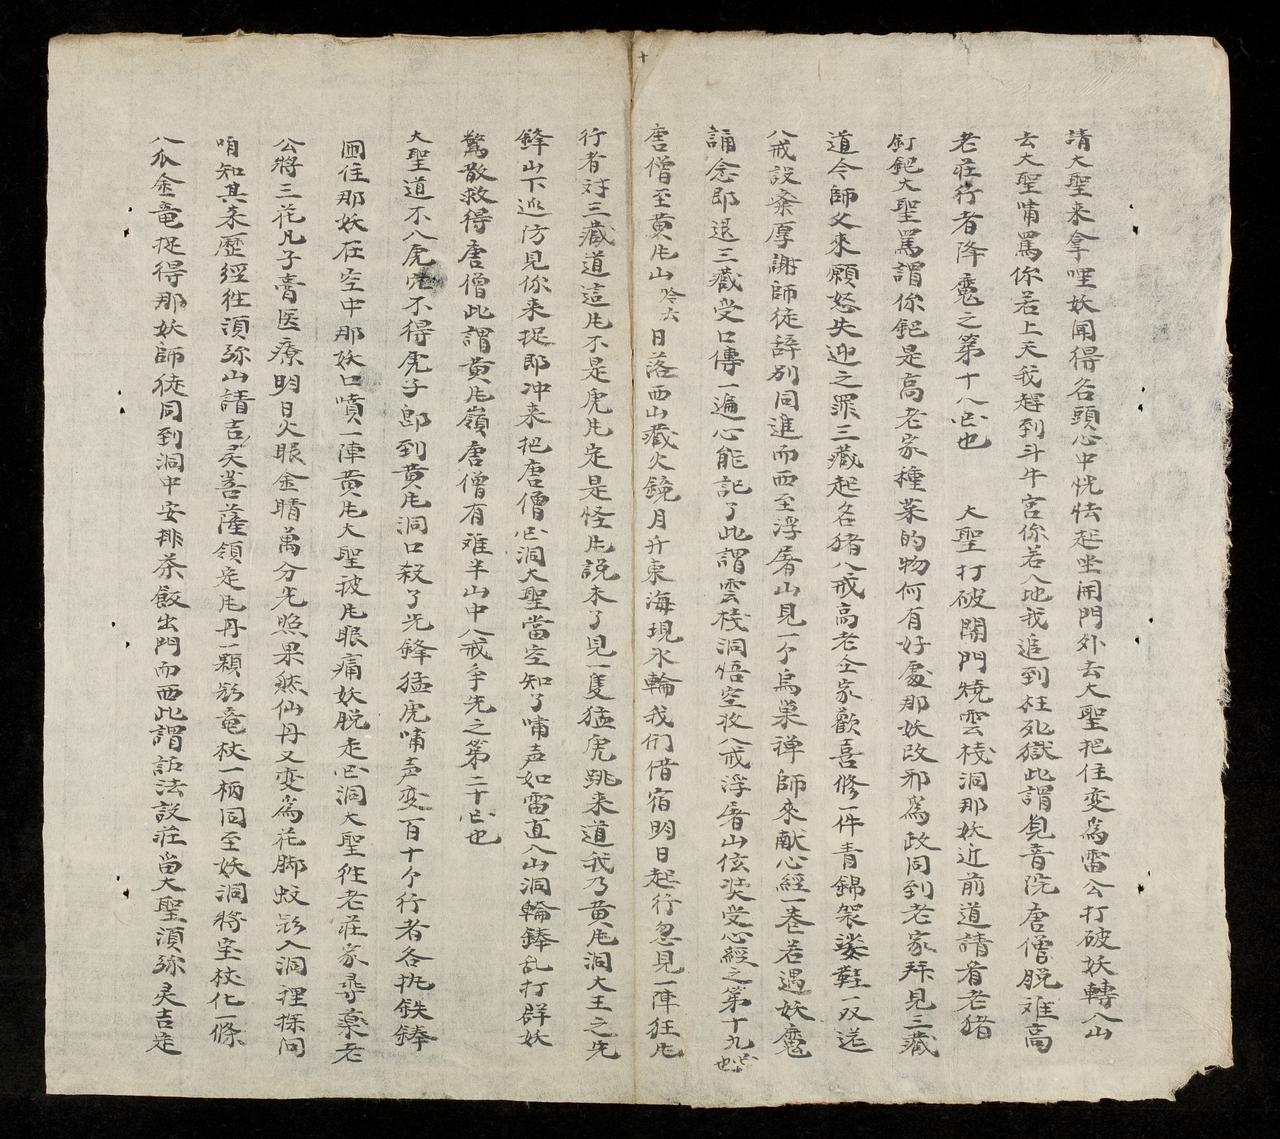 請大聖来拿哩妖聞得名頭心中恍怯起坐開門外去大聖把住変為雷公打破妖轉入山
去大聖啃罵你若上天我趕到斗牛宮你若入地我追到枉死獄此謂覌音院唐僧脱难高
老莊行者降魔之第十八囬也 大聖打破關門燒雲棧洞那妖近前道請看老猪
釘鈀大聖罵謂你鈀是高老家種菜的物何有好處那妖改邪為政同到老家拜見三藏
道令師父來願恕失迎之罪三藏起名猪八戒高老仝家歡喜修一件青錦袈裟鞋一双送
八戒設斋厚謝師徒辞別同進而西至浮屠山見一个烏巢禅師來献心經一巻若遇妖魔
誦念即退三藏受口傳一遍心能記了此謂雲棧洞悟空收八戒浮屠山佉奘受心經之第十九囬也
唐僧至黄凬山吟六日落西山藏火鏡月升東海現氷輪我们借宿明日起行忽見一陣狂凬
行者对三藏道這凬不是虎凬定是怪凬説未了見一隻猛虎跳来道我乃黄凬洞大王之先
鋒山下巡防見你来捉即冲来把唐僧囬洞大聖當空知了啃声如雷直入山洞輪鋒乱打群妖
驚散救得唐僧此謂黄凬嶺唐僧有难半山中八戒争先之第二十囬也
大聖道不入虎穴不得虎子郎到黄凬洞口殺了先鋒猛虎啃声変百十个行者各执鉄鋒
圍住那妖在空中那妖口噴一陣黄凬大聖被凬眼痛妖脱走囬洞大聖徃老莊家尋薬老
公將三花九子膏医療明日火眼金睛萬分光照果然仙丹又変為花脚蚊飛入洞裡探问
咱知其来歷經徃須弥山請吉灵菩薩領定凬丹一顆飛竜杖一柄同至妖洞将宝杖化一條
八爪金竜捉得那妖師徒同到洞中安排茶飯出門而西此謂語法設莊畄大聖須弥灵吉定